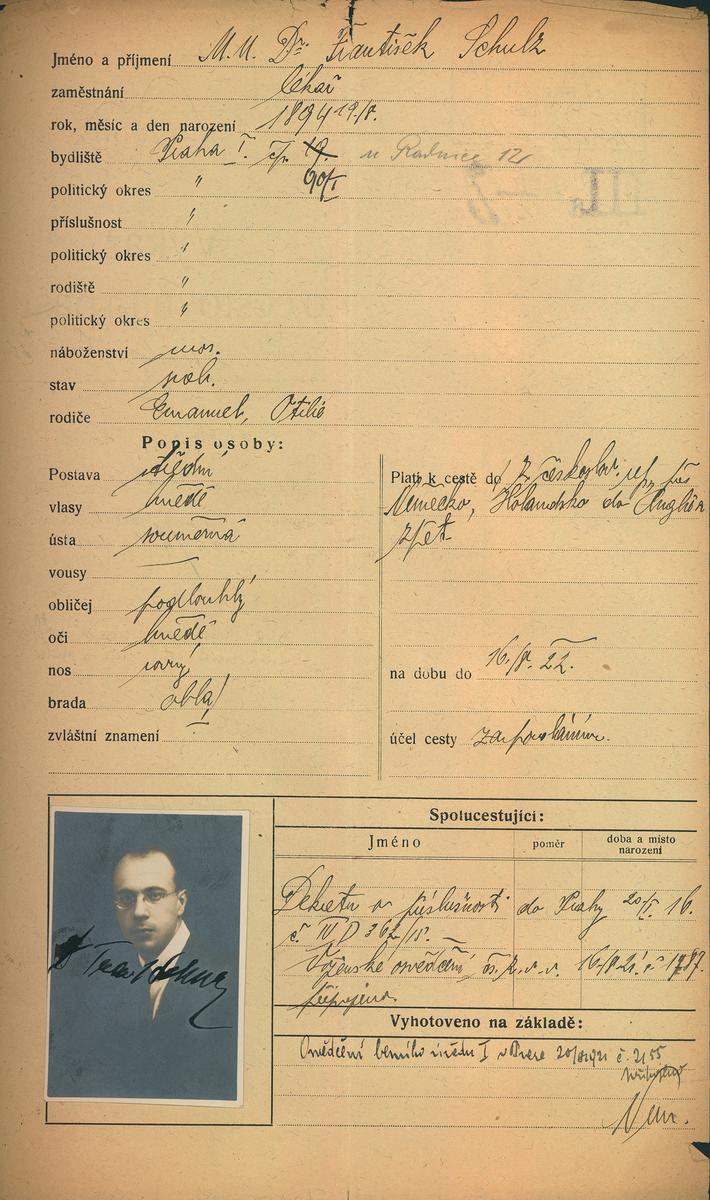 Jméno a příjmení M.U. Dr. František Schulz
zaměstnání lékař
rok, měsíc a den narození 1894 19/
bydliště Praha I. čp. 19. u Radnice 12
politický okres " 90/I
příslušnost "
politický okres "
rodiště "
politický okres "
náboženství
stav
rodiče Emanuel, Otilie
Popis osoby:
Postava střední
vlasy hnědé
ústa souměrná
vousy —
obličej podlouhlý
oči hnědé
nos rovný
brada oblá
zvláštní znamení
Platí k cestě do z českoslov. rep. přes
Německo, Holandsko do Anglie a
zpět
na dobu do 16/ 22.
účel cesty
Dr Fran Schulz
Spolucestující:
Jméno poměr doba a místo narození
Dekretu o příslušnosti do Prahy 20/ 16.
č. IV D 362/15.
Vojenské osvědčení 16/ 21. č 1787.
připojeno
Vyhotoveno na základě:
Osvědčení berního úřadu I v Praze 20/ 1921 č. 2155